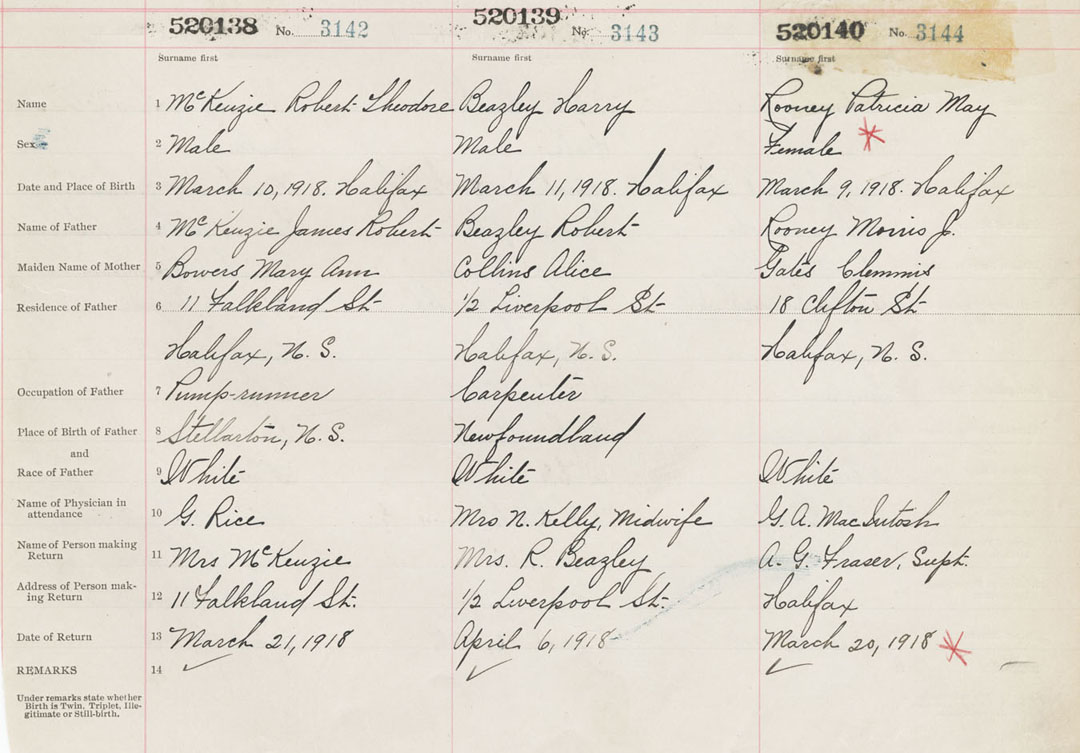 520138 No. 3142 520139 No. 3143 520140 No. 3144
Surname first Surname first Surname first
Name 1 McKenzie Robert Theodore Beazley Harry Rooney Patricia May
Sex 2 Male Male Female
Date and Place of Birth 3 March 10, 1918. Halifax March 11, 1918. Halifax March 9, 1918. Halifax
Name of Father 4 McKenzie James Robert Beazley Robert Rooney Morris J.
Maiden Name of Mother 5 Bowers Mary Ann Collins Alice Gates Clemmis
Residence of Father 6 11 Falkland St 1/2 Liverpool St 18 Clifton St
Halifax, N. S. Halifax, N. S. Halifax, N. S.
Occupation of Father 7 Pump-runner Carpenter
Place of Birth of Father 8 Stellarton, N. S. Newfoundland
and
Race of Father 9 White White White
Name of Physician in
attendance 10 G. Rice Mrs N. Kelly, Midwife G. A. MacIntosh
Name of Person making
Return 11 Mrs McKenzie Mrs. R. Beazley A. G. Fraser, Supt.
Address of Person mak-
ing Return 12 11 Falkland St. 1/2 Liverpool St. Halifax
Date of Return 13 March 21, 1918 April 6, 1918 March 20, 1918
REMARKS 14
Under remarks state whether
Birth is Twin, Triplet, Ille-
gitimate or Still-birth.